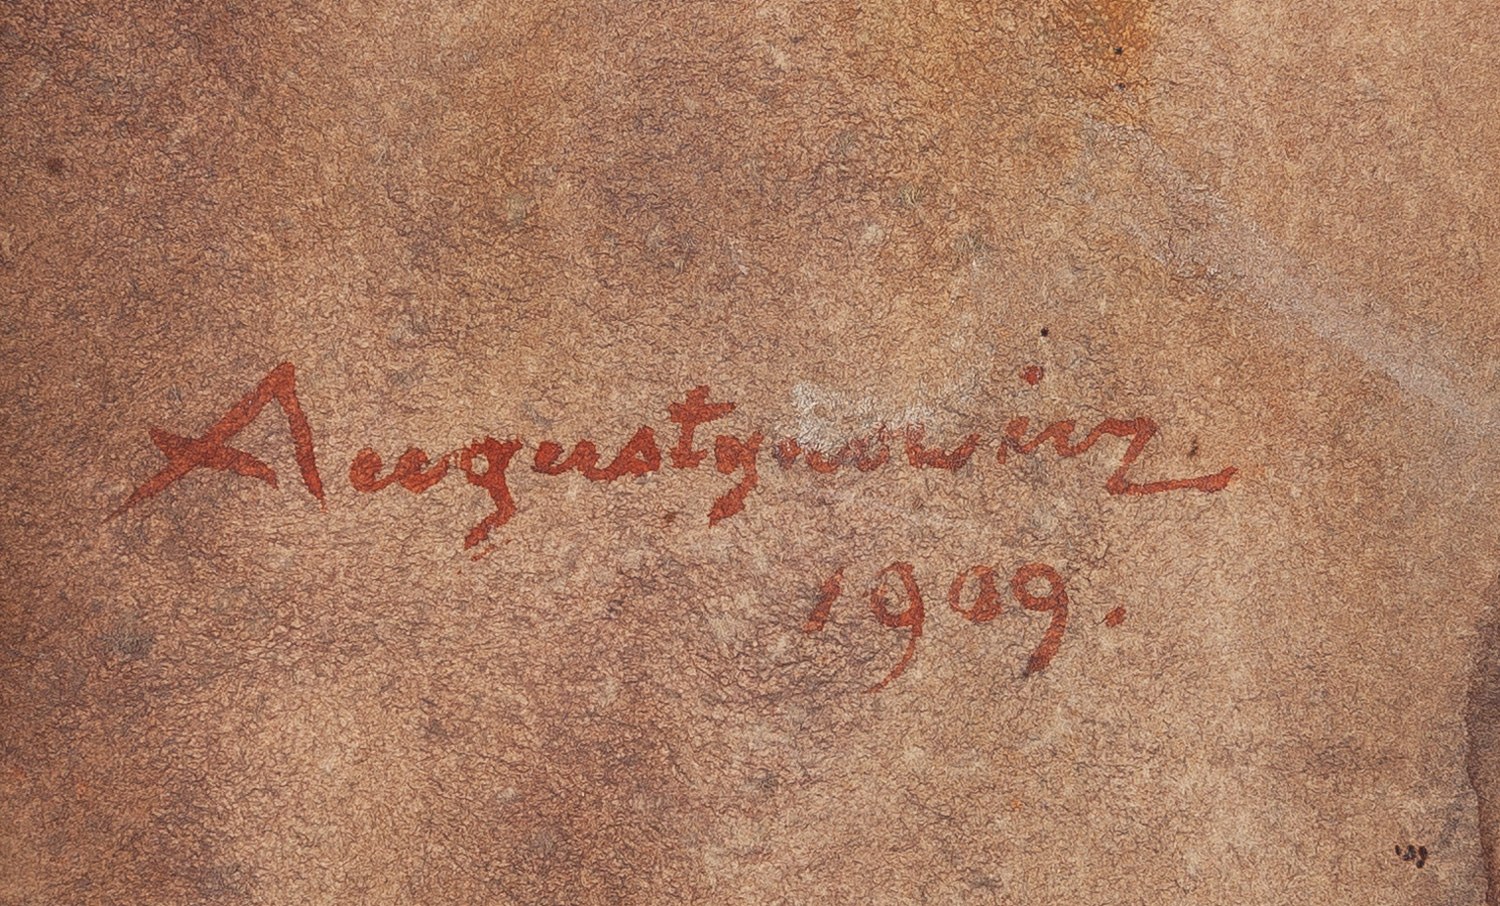 Augustynowicz
1909.